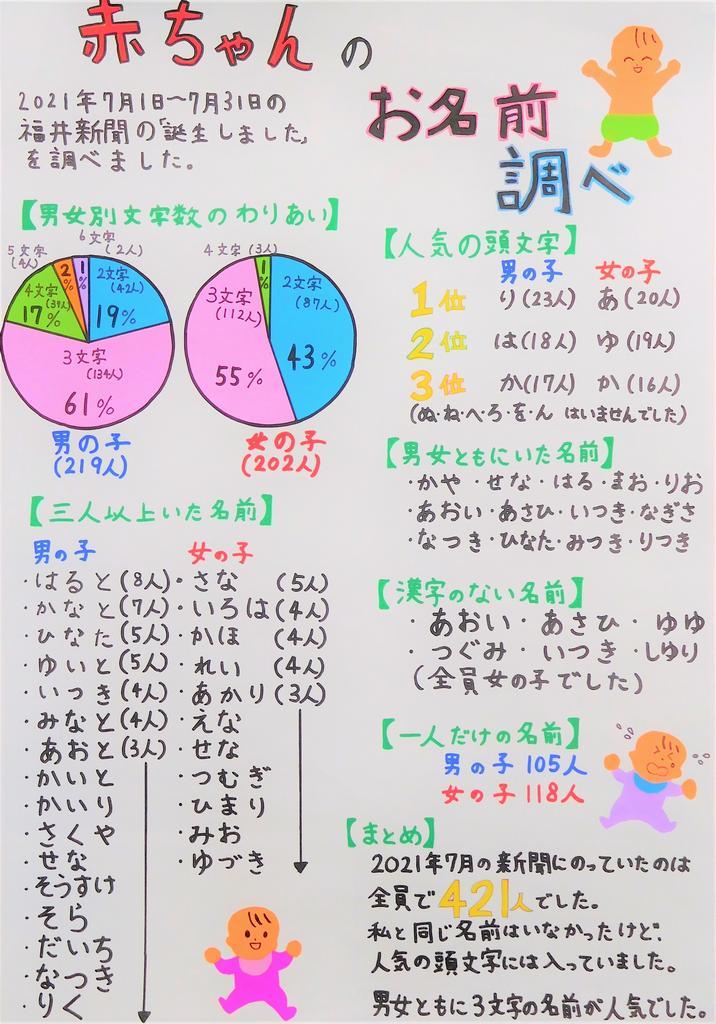 赤ちゃんの
お名前
調べ
2021年7月1日~7月31日の
福井新聞の「誕生しました」
を調べました。
【男女別文字数のわりあい】
6文字
(2人)
1%
5文字
(4人)
2%
4文字
(37人)
17%
2文字
(42人)
19%
3文字
(134人)
61%
男の子
(219人)
4文字(3人)
1%
3文字
(112人)
55%
2文字
(87人)
43%
女の子
(202人)
【三人以上いた名前】
男の子 女の子
・はると(8人)・さな (5人)
・かなと(7人)・いろは(4人)
・ひなた(5人)・かほ (4人)
・ゆいと(5人)・れい (4人)
・いつき(4人)・あかり(3人)
・みなと(4人)・えな
・あおと(3人)・せな
・かいと ・つむぎ
・かいり ・ひまり
・さくや ・みお
・せな ・ゆづき
・そうすけ
・そら
・だいち
・なつき
・りく
【人気の頭文字】
男の子 女の子
1位 り(23人) あ(20人)
2位 は(18人) ゆ(19人)
3位 か(17人) か(16人)
(ぬ・ね・へ・ろ・を・ん はいませんでした)
【男女ともにいた名前】
・かや・せな・はる・まお・りお
・あおい・あさひ・いつき・なぎさ
・なつき・ひなた・みつき・りつき
【漢字のない名前】
・あおい・あさひ・ゆゆ
・つぐみ・いつき・しゆり
(全員女の子でした)
【一人だけの名前】
男の子 105人
女の子 118人
【まとめ】
2021年7月の新聞にのっていたのは
全員で421人でした。
私と同じ名前はいなかったけど、
人気の頭文字には入っていました。
男女ともに3文字の名前が人気でした。